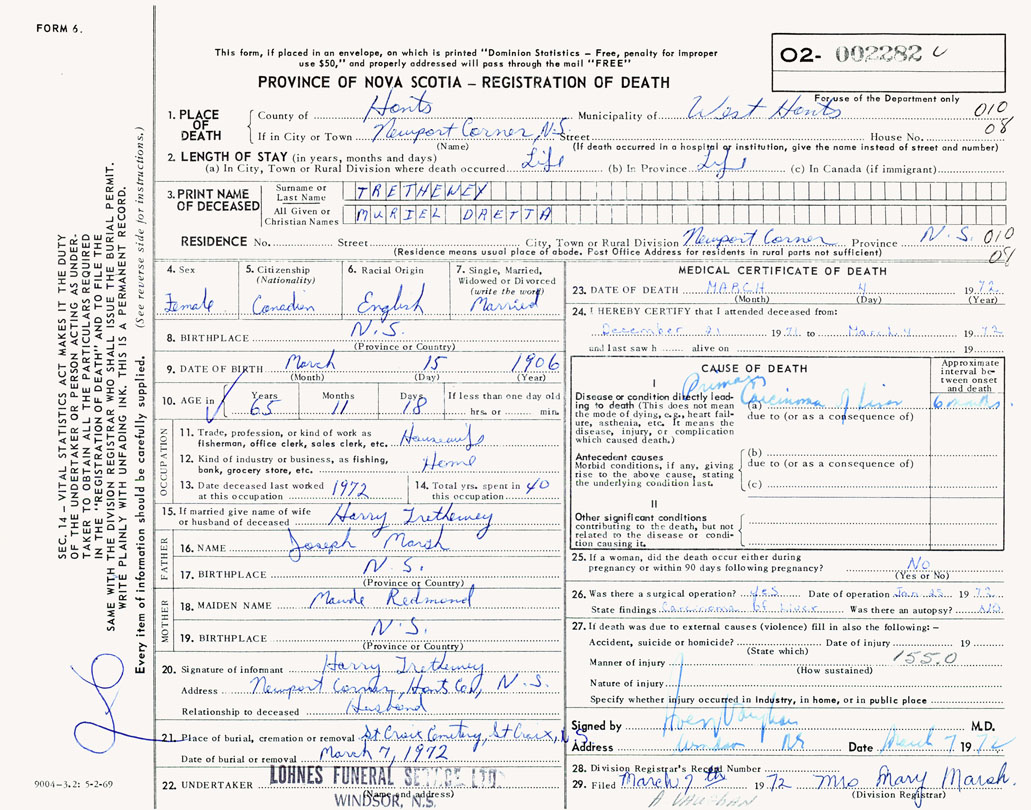 FORM 6.
This form, if placed in an envelope, on which is printed "Dominion Statistics – Free, penalty for improper
use $50," and properly addressed will pass through the mail "FREE"
PROVINCE OF NOVA SCOTIA – REGISTRATION OF DEATH
O2- 002282
For use of the Department only
SEC. 14 – VITAL STATISTICS ACT MAKES IT THE DUTY
OF THE UNDERTAKER OR PERSON ACTING AS UNDER-
TAKER TO OBTAIN ALL THE PARTICULARS REQUIRED
IN THE "REGISTRATION OF DEATH" AND TO FILE THE
SAME WITH THE DIVISION REGISTRAR WHO SHALL ISSUE THE BURIAL PERMIT.
WRITE PLAINLY WITH UNFADING INK. THIS IS A PERMANENT RECORD.
Every item of information should be carefully supplied. (See reverse side for instructions.)
1. PLACE OF DEATH
County of Hants Municipality of West Hants 010
If in City or Town Newport Corner, N.S. Street House No. 08
(Name) (If death occurred in a hospital or institution, give the name instead of street and number)
2. LENGTH OF STAY (in years, months and days)
(a) In City, Town or Rural Division where death occurred Life (b) In Province Life (c) In Canada (if immigrant)
3. PRINT NAME OF DECEASED
Surname or Last Name TRETHEWEY
All Given or Christian Names MURIEL DRETTA
RESIDENCE No. Street City, Town or Rural Division Newport Corner Province N.S. 010
(Residence means usual place of abode. Post Office Address for residents in rural parts not sufficient) 08
4. Sex Female
5. Citizenship (Nationality) Canadian
6. Racial Origin English
7. Single, Married, Widowed or Divorced (write the word) Married
8. BIRTHPLACE N.S.
(Province or Country)
9. DATE OF BIRTH March 15 1906
(Month) (Day) (Year)
10. AGE in Years 65 Months 11 Days 18 If less than one day old hrs. or min.
OCCUPATION
11. Trade, profession, or kind of work as fisherman, office clerk, sales clerk, etc. Housewife
12. Kind of industry or business, as fishing, bank, grocery store, etc. Home
13. Date deceased last worked at this occupation 1972
14. Total yrs. spent in this occupation 40
15. If married give name of wife or husband of deceased Harry Trethewey
FATHER
16. NAME Joseph Marsh
17. BIRTHPLACE N.S.
(Province or Country)
MOTHER
18. MAIDEN NAME Maude Redmond
19. BIRTHPLACE N.S.
(Province or Country)
20. Signature of informant Harry Trethewey
Address Newport Corner, Hants Co, N.S.
Relationship to deceased Husband
21. Place of burial, cremation or removal St Croix Cemetery, St Croix, N.S
Date of burial or removal March 7, 1972
22. UNDERTAKER LOHNES FUNERAL SERVICE LTD
(Name and address)
WINDSOR, N.S.
9004-3.2: 5-2-69
MEDICAL CERTIFICATE OF DEATH
23. DATE OF DEATH MARCH 4 1972
(Month) (Day) (Year)
24. I HEREBY CERTIFY that I attended deceased from:
December 21 1971 to March 4 1972
and last saw h alive on 19
CAUSE OF DEATH
Approximate interval between onset and death
I
Disease or condition directly leading to death (This does not mean the mode of dying, e.g., heart failure, asthenia, etc. It means the disease, injury, or complication which caused death.)
Primary
(a) Carcinoma of Liver 6 months
due to (or as a consequence of)
Antecedent causes
Morbid conditions, if any, giving rise to the above cause, stating the underlying condition last.
(b)
due to (or as a consequence of)
(c)
II
Other significant conditions
contributing to the death, but not related to the disease or condition causing it.
25. If a woman, did the death occur either during pregnancy or within 90 days following pregnancy? No
(Yes or No)
26. Was there a surgical operation? yes Date of operation Jan 25 1972
State findings Carcinoma of Liver Was there an autopsy? NO
27. If death was due to external causes (violence) fill in also the following: –
Accident, suicide or homicide? Date of injury 19
(State which)
Manner of injury 155.0
(How sustained)
Nature of injury
Specify whether injury occurred in industry, in home, or in public place
Signed by Vaughan M.D.
Address Windsor NS Date March 7 1972
28. Division Registrar's Record Number
29. Filed March 7th 1972 Mrs Mary Marsh.
(Division Registrar)
A VAUGHAN